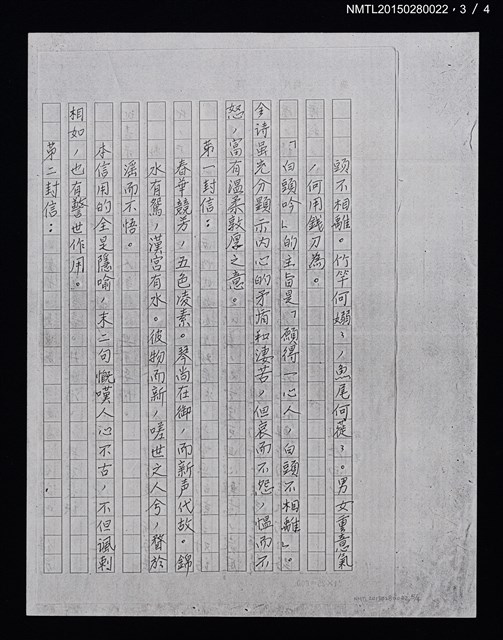 NMTL20150280022,3 / 4
頭不相離。竹竿何嫋〻,魚尾何蓰〻。男女重意氣
,何用錢刀為。
「白頭吟」的主旨是「願得一心人,白頭不相離」。
全詩虽充分顯示內心的矛盾和凄苦,但哀而不怨,愠而不
怒,富有溫柔敦厚之意。
第一封信:
春華競芳,五色凌素。琴尚在御,而新声代故。錦
水有鴛,漢宮有水。彼物而新,嗟世之人兮,瞀於
淫而不悟。
本信用的全是隱喻,末二句慨嘆人心不古,不但諷刺
相如,也有警世作用。
第二封信: